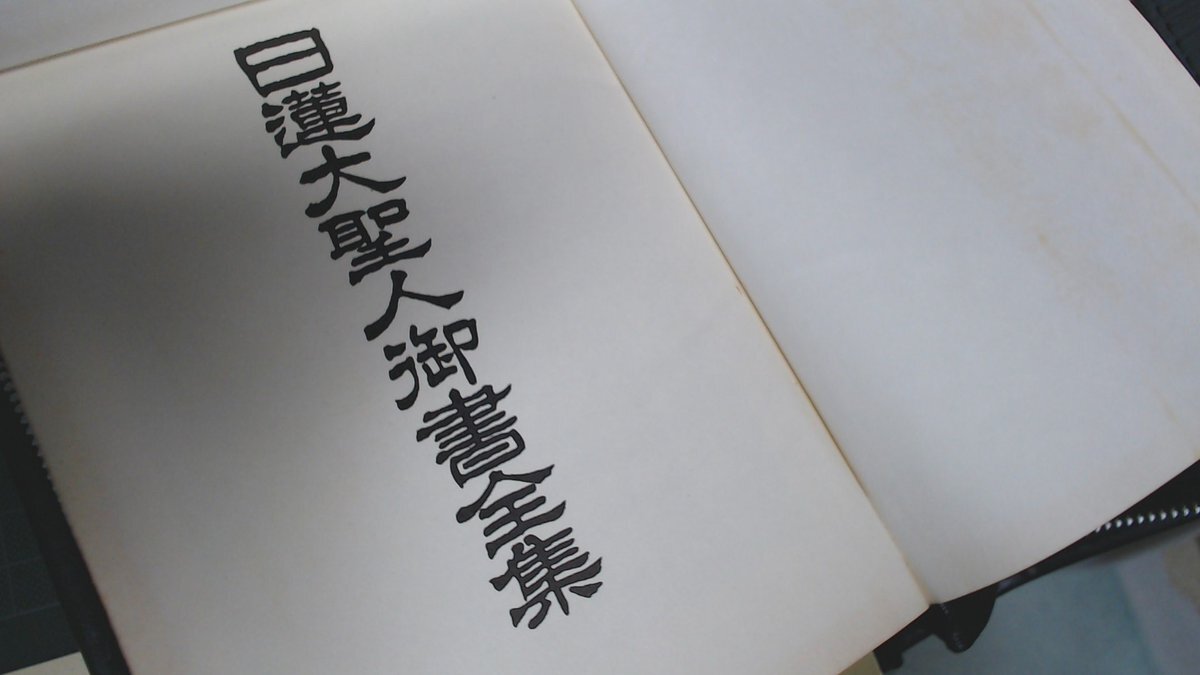 日蓮大聖人御書全集